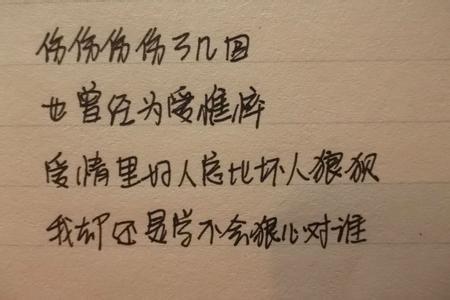 伤伤伤伤了几回
也曾经为爱憔悴
爱情里好人总比坏人狼狈
我却还是学不会狠心对谁